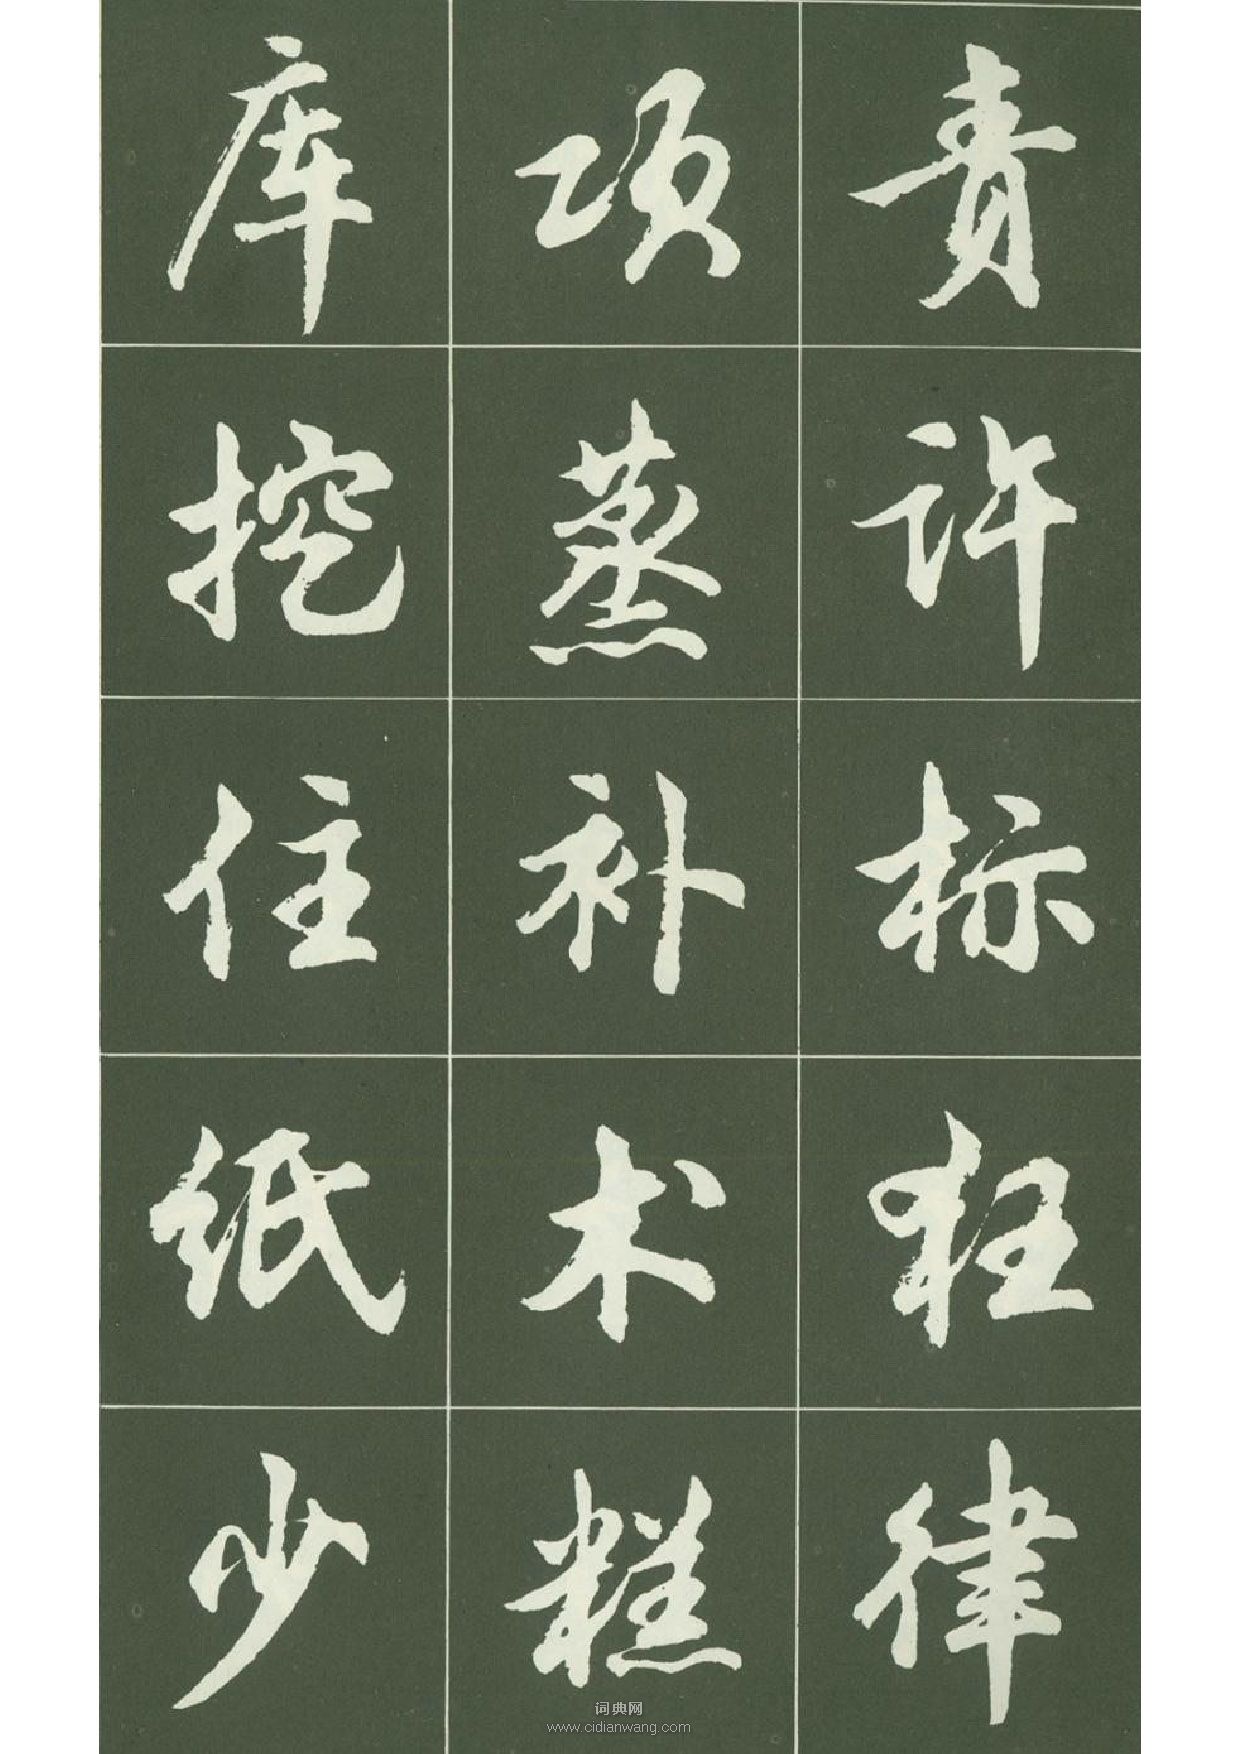 责许标狂律
项蒸补术糕
库挖住纸少
词典网
www.cidianwang.com